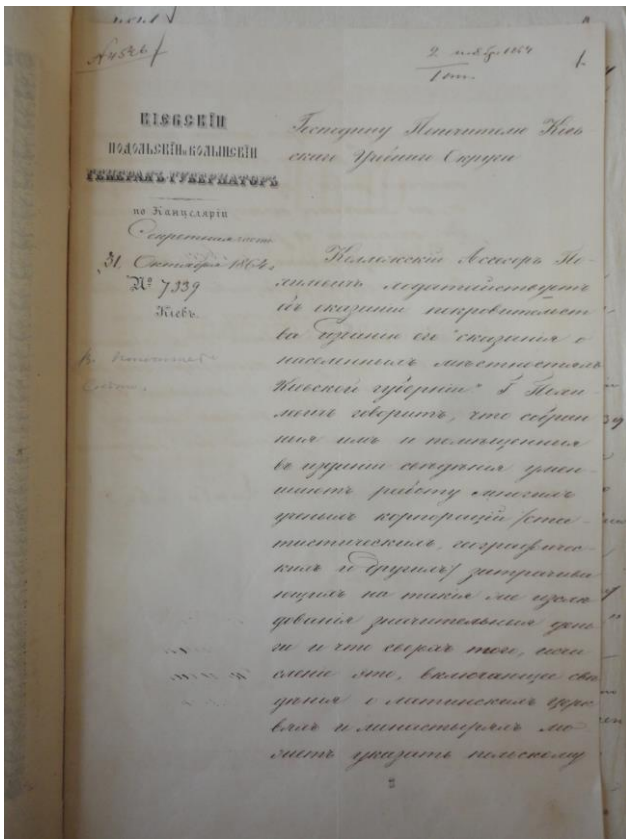 № 4526
2 ноября 1864
КІЕВСКІЙ
ПОДОЛЬСКІЙ и ВОЛЫНСКІЙ
ГЕНЕРАЛЪ-ГУБЕРНАТОРЪ
по Канцеляріи
Секретная часть
31 Октября 1864 г
№ 7339
Кіевъ.
Господину Попечителю Кіев
скаго Учебнаго Округа
Коллежскій Ассесоръ По-
хилевичъ ходатайствуетъ
объ оказаніи покровительст
ва изданію его "сказанія о
населенныхъ мѣстностяхъ
Кіевской губерніи" Г Похи-
левичъ говоритъ, что собран
ныя имъ и помѣщенныя
въ изданіи свѣденія умень-
шаютъ работу многихъ
ученыхъ корпорацій /ста-
тистическихъ, географичес-
кихъ и другихъ/ затрачива
ющихъ на такія же изслѣ
дованія значительныя день
ги и что сверхъ того,
это, включающее свѣ
дѣнія о латинскихъ церк
вяхъ и монастыряхъ мо-
жетъ указать польскому